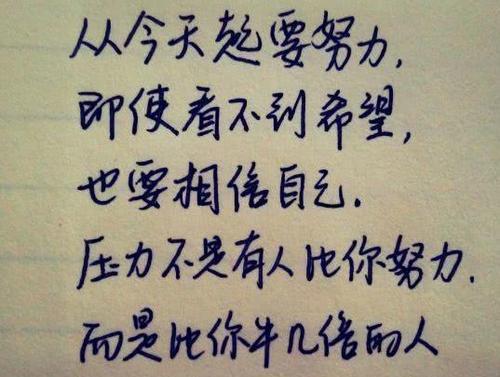 从今天起要努力,
即使看不到希望,
也要相信自己.
压力不是有人比你努力.
而是比你牛几倍的人